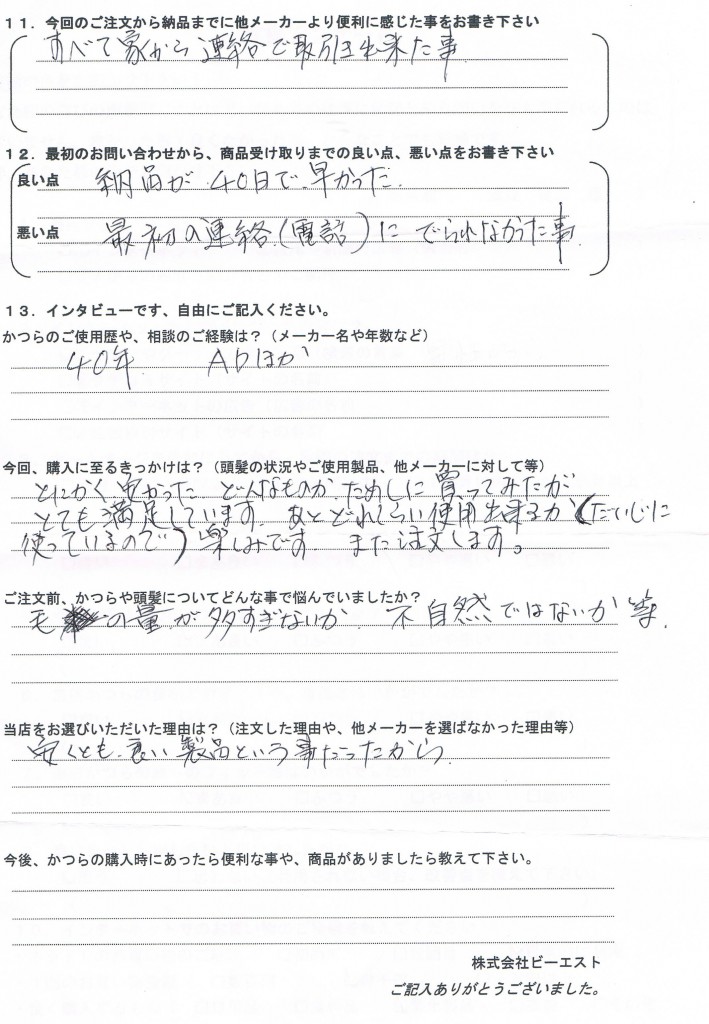 11．今回のご注文から納品までに他メーカーより便利に感じた事をお書き下さい
すべて家から連絡で取引出来た事
12．最初のお問い合わせから、商品受け取りまでの良い点、悪い点をお書き下さい
良い点 納品が40日で早かった。
悪い点 最初の連絡(電話)にでられなかった事
13．インタビューです、自由にご記入ください。
かつらのご使用歴や、相談のご経験は？（メーカー名や年数など）
40年 ADほか
今回、購入に至るきっかけは？（頭髪の状況やご使用製品、他メーカーに対して等）
とにかく安かった どんなものかためしに買ってみたが
とても満足しています あとどれくらい使用出来るか(だいじに
使っているので)楽しみです また注文します。
ご注文前、かつらや頭髪についてどんな事で悩んでいましたか？
毛の量が多すぎないか 不自然ではないか等。
当店をお選びいただいた理由は？（注文した理由や、他メーカーを選ばなかった理由等）
安くとも良い製品という事だったから
今後、かつらの購入時にあったら便利な事や、商品がありましたら教えて下さい。
株式会社ビーエスト
ご記入ありがとうございました。